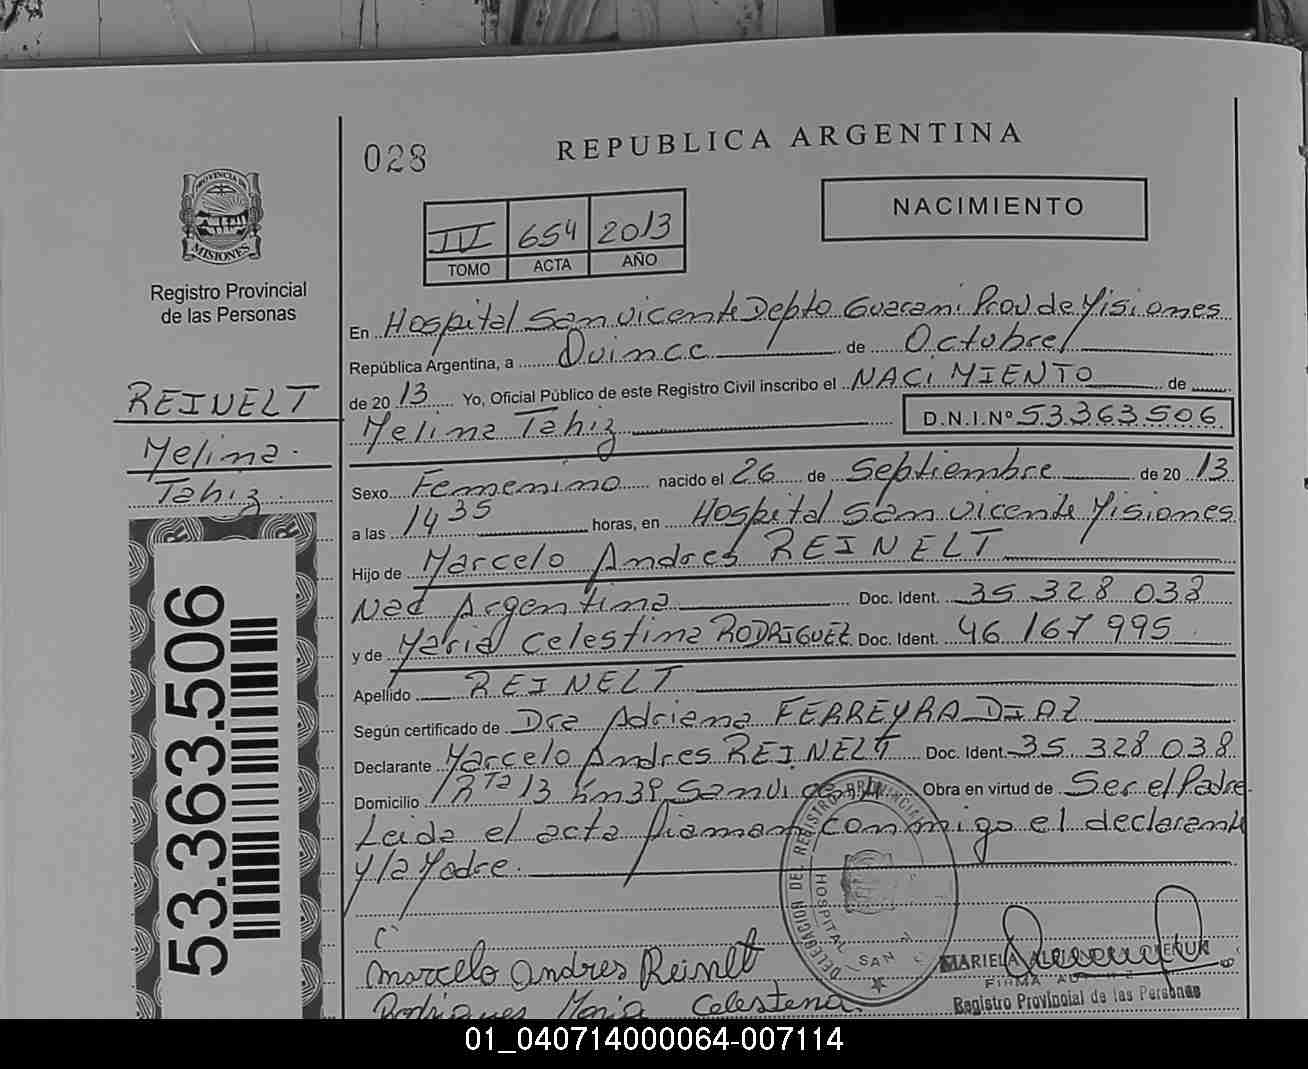 028
REPUBLICA ARGENTINA
NACIMIENTO
IV 654 2013
TOMO ACTA AÑO
PROVINCIA DE
MISIONES
Registro Provincial
de las Personas
REINELT
Melina
Tahiz
53.363.506
En Hospital San Vicente Depto Guarani Prov de Misiones
República Argentina, a Quince de Octubre
de 2013 Yo, Oficial Público de este Registro Civil inscribo el NACIMIENTO de
Melina Tahiz D.N.I.Nº 53363506
Sexo Femenino nacido el 26 de Septiembre de 2013
a las 14 35 horas, en Hospital San Vicente Misiones
Hijo de Marcelo Andres REINELT
Nac Argentina Doc. Ident. 35 328 038
y de Maria Celestina RODRIGUEZ Doc. Ident. 46 167 995
Apellido REINELT
Según certificado de Dra Adriana FERREYRA DIAZ
Declarante Marcelo Andres REINELT Doc. Ident. 35 328 038
Domicilio Rta 13 Km 39 San Vicente Obra en virtud de Ser el Padre
Leida el acta firman conmigo el declarante
y la Madre.
DELEGACION DEL REGISTRO PROVINCIAL
HOSPITAL SAN
marcelo andres Reinelt
Rodrigues Maria Celestena
MARIELA
Registro Provincial de las Personas
01_040714000064-007114